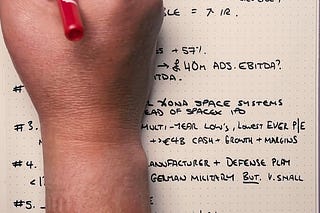 BLE = ↗ IR.
S + 57%
→ £40M ADS. EBITDA?
TDA.
L XONA SPACE SYSTEMS
EAD OF SPACEX IPO
#3. MULTI-YEAR LOW'S, LOWEST EVER P/E
→ €48 CASH + GROWTH + MARGINS
#4. MANUFACTURER + DEFENSE PLAY
<1 GERMAN MILITARY BUT V. SMALL
#5.